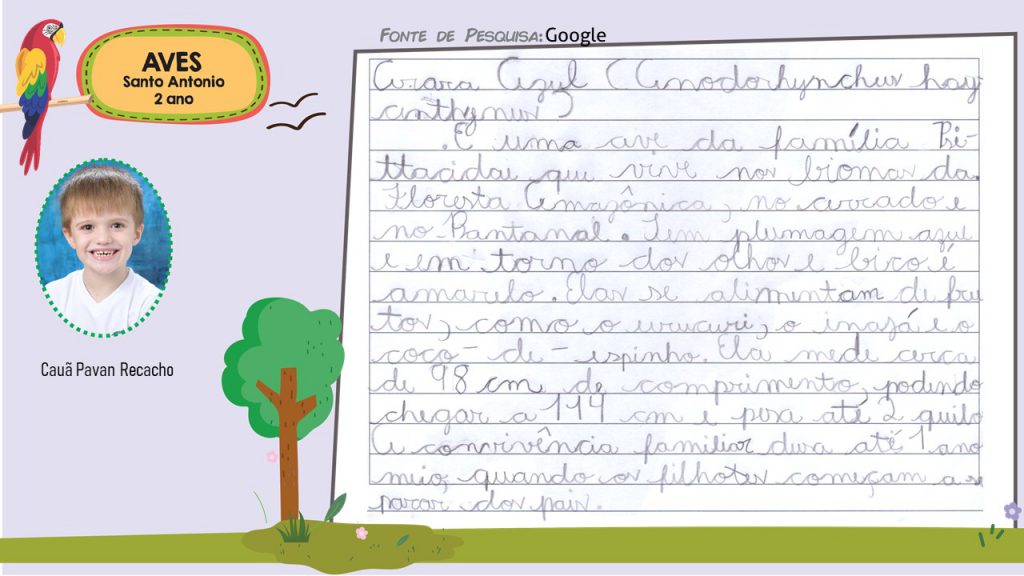 AVES
Santo Antonio
2 ano
FONTE DE PESQUISA: Google
Arara Azul (Anodorhynchus hay
anthynus)
.É uma ave da família Psi-
ttacidae que vive nos biomas da
Floresta Amazônica, no cerrado e
no Pantanal. Tem plumagem azul
e em torno dos olhos e bico é
amarelo. Elas se alimentam de fru
tos, como o urucuri, o inajá e o
coco-de-espinho. Ela mede cerca
de 98 cm de comprimento, podendo
chegar a 114 cm e pesa até 2 quilo
A convivência familiar dura até 1 ano
meio, quando os filhotes começam a se
parar dos pais.
Cauã Pavan Recacho